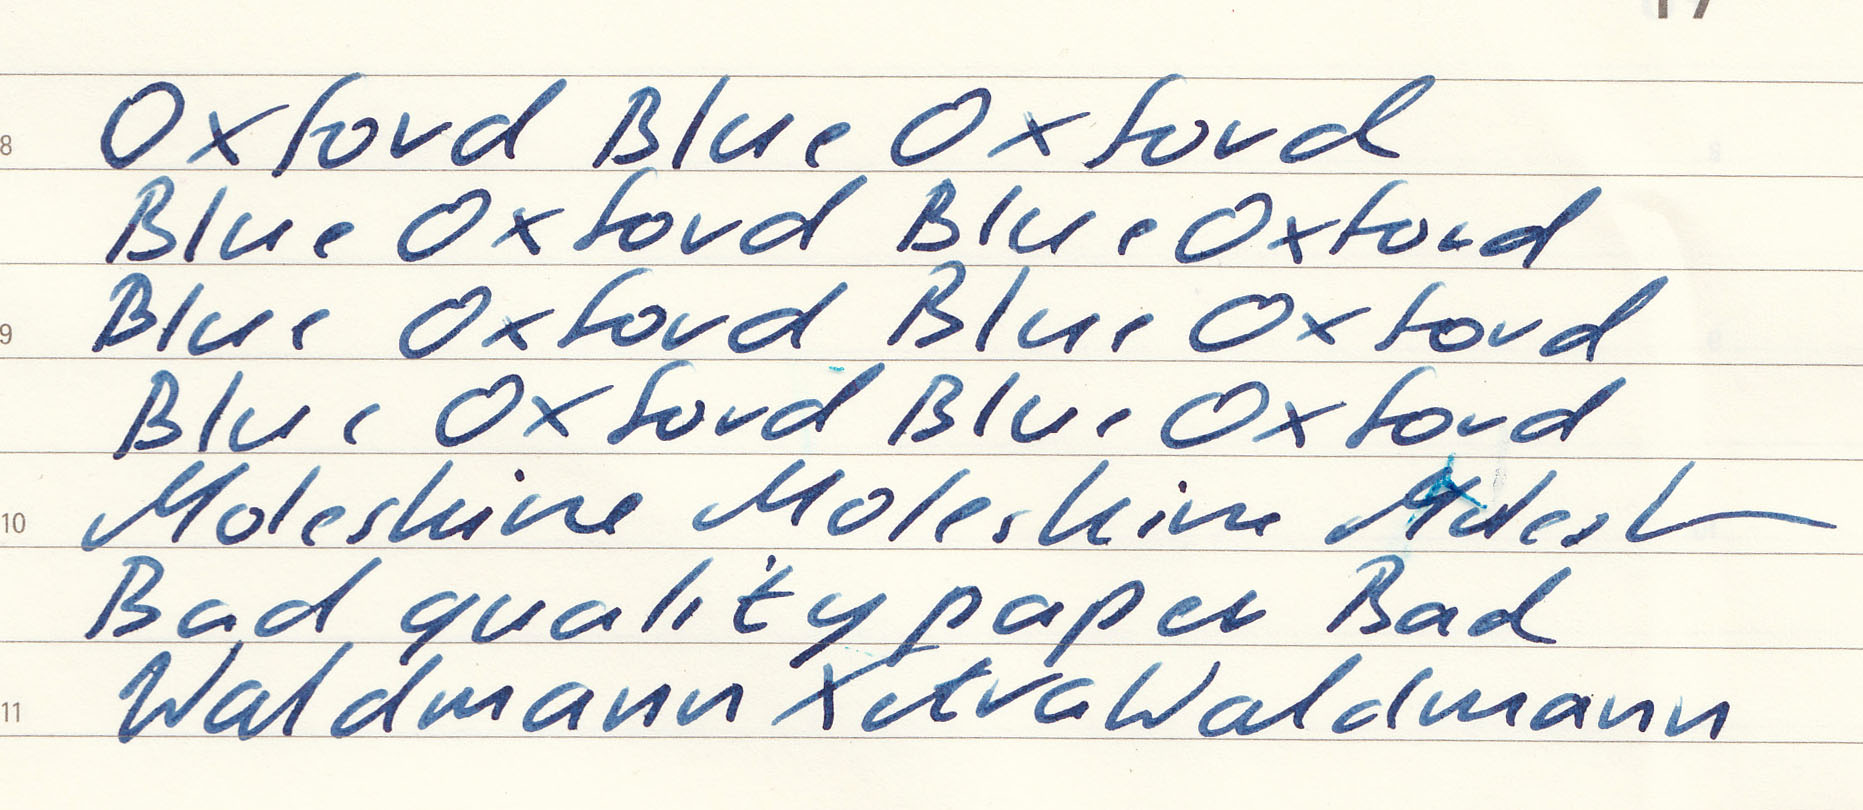 17
8 Oxford Blue Oxford
Blue Oxford Blue Oxford
9 Blue Oxford Blue Oxford
Blue Oxford Blue Oxford
10 Moleskine Moleskine Molesk
Bad quality paper Bad
11 Waldmann Xetra Waldmann